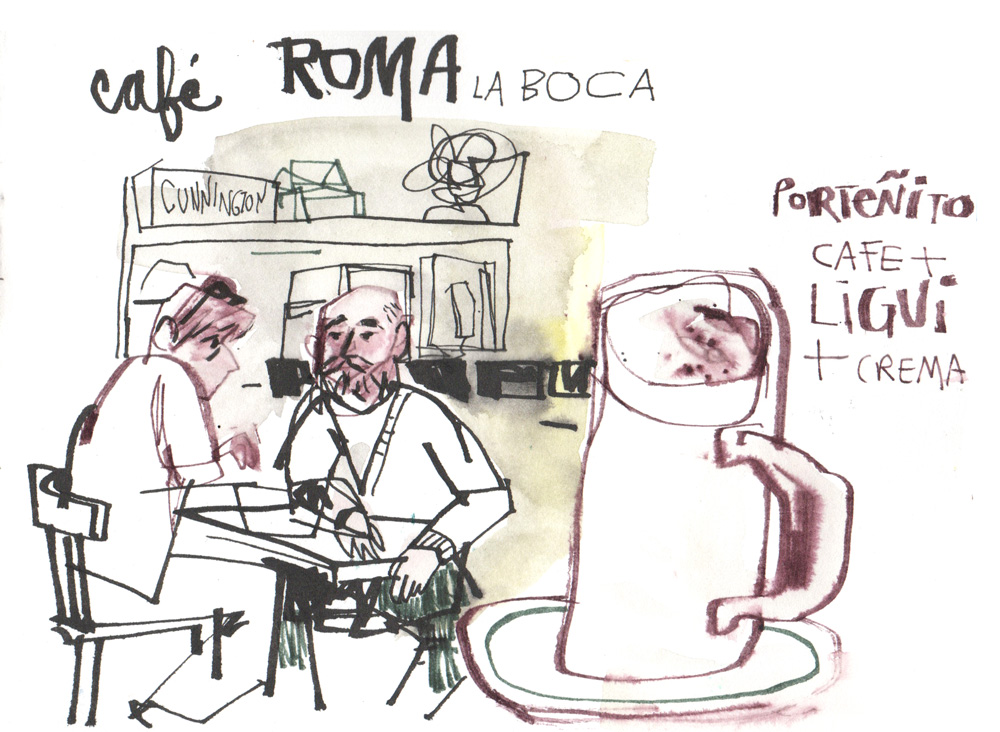 café ROMA LA BOCA
CUNNINGTON
PORTEÑITO
CAFE +
LIGUI
+ CREMA